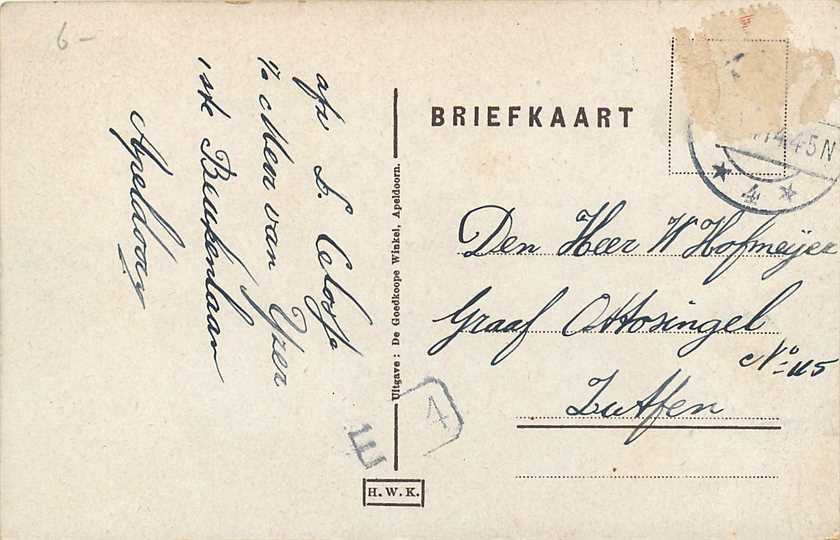 6-
afz L. Celosse
p/a Mevr van Yzer
1ste Beukenlaan
Apeldoorn
Uitgave: De Goedkoope Winkel, Apeldoorn.
BRIEFKAART
4.45N
4
Den Heer W Hofmeijer
Graaf Ottosingel
No 115
Zutfen
4
E
H. W. K.